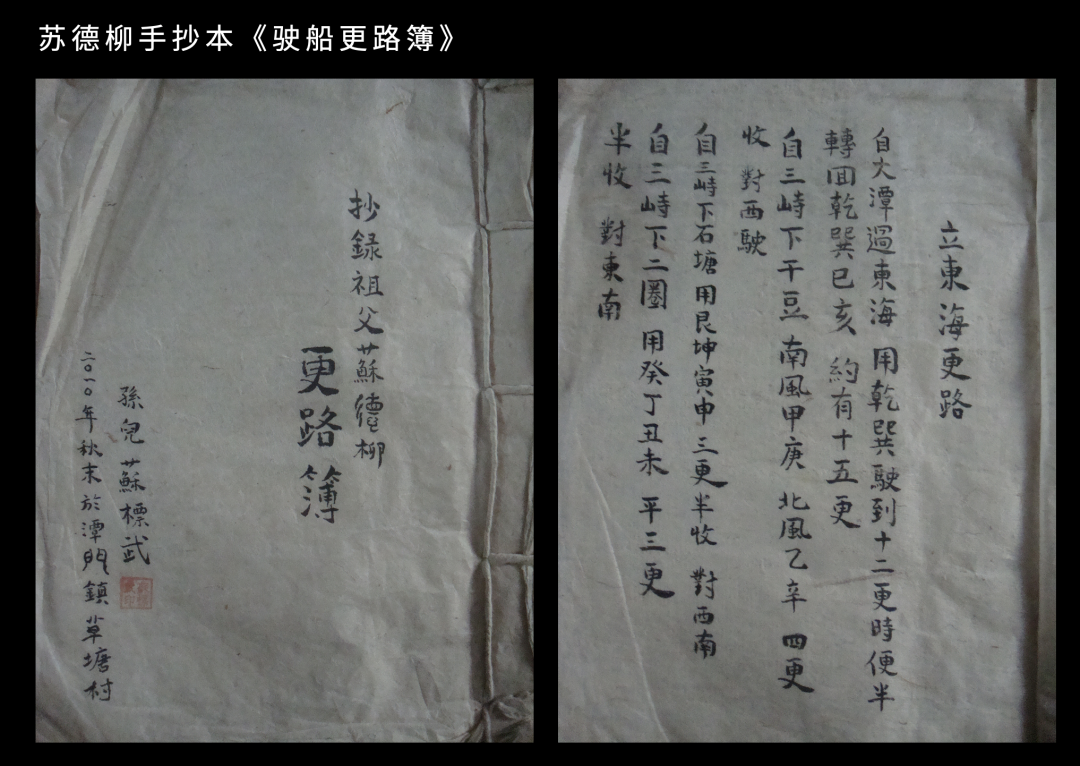 苏德柳手抄本《驶船更路簿》
抄録祖父蘇德柳
更路簿
孫兒蘇標武
二〇一〇年秋末於潭門鎮草塘村
立東海更路
自大潭過東海 用乾巽駛到十二更時便半
轉回乾巽巳亥 約有十五更
自三峙下干豆 南風甲庚 北風乙辛 四更
收 對西駛
自三峙下石塘用艮坤寅申三更半收 對西南
自三峙下二圈 用癸丁丑未 平三更
半收 對東南